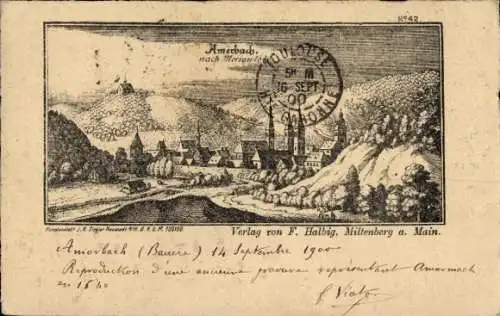 No 42
Amerbach.
nach Merian 16
TOULOUSE
5H M
16 SEPT
00
HTE GARONNE
Verlag von F. Halbig, Miltenberg a. Main.
Amorbach (Baviere) 14 Septembre 1900
Reproduction d'une ancienne gravure représentant Amermach
en 1640